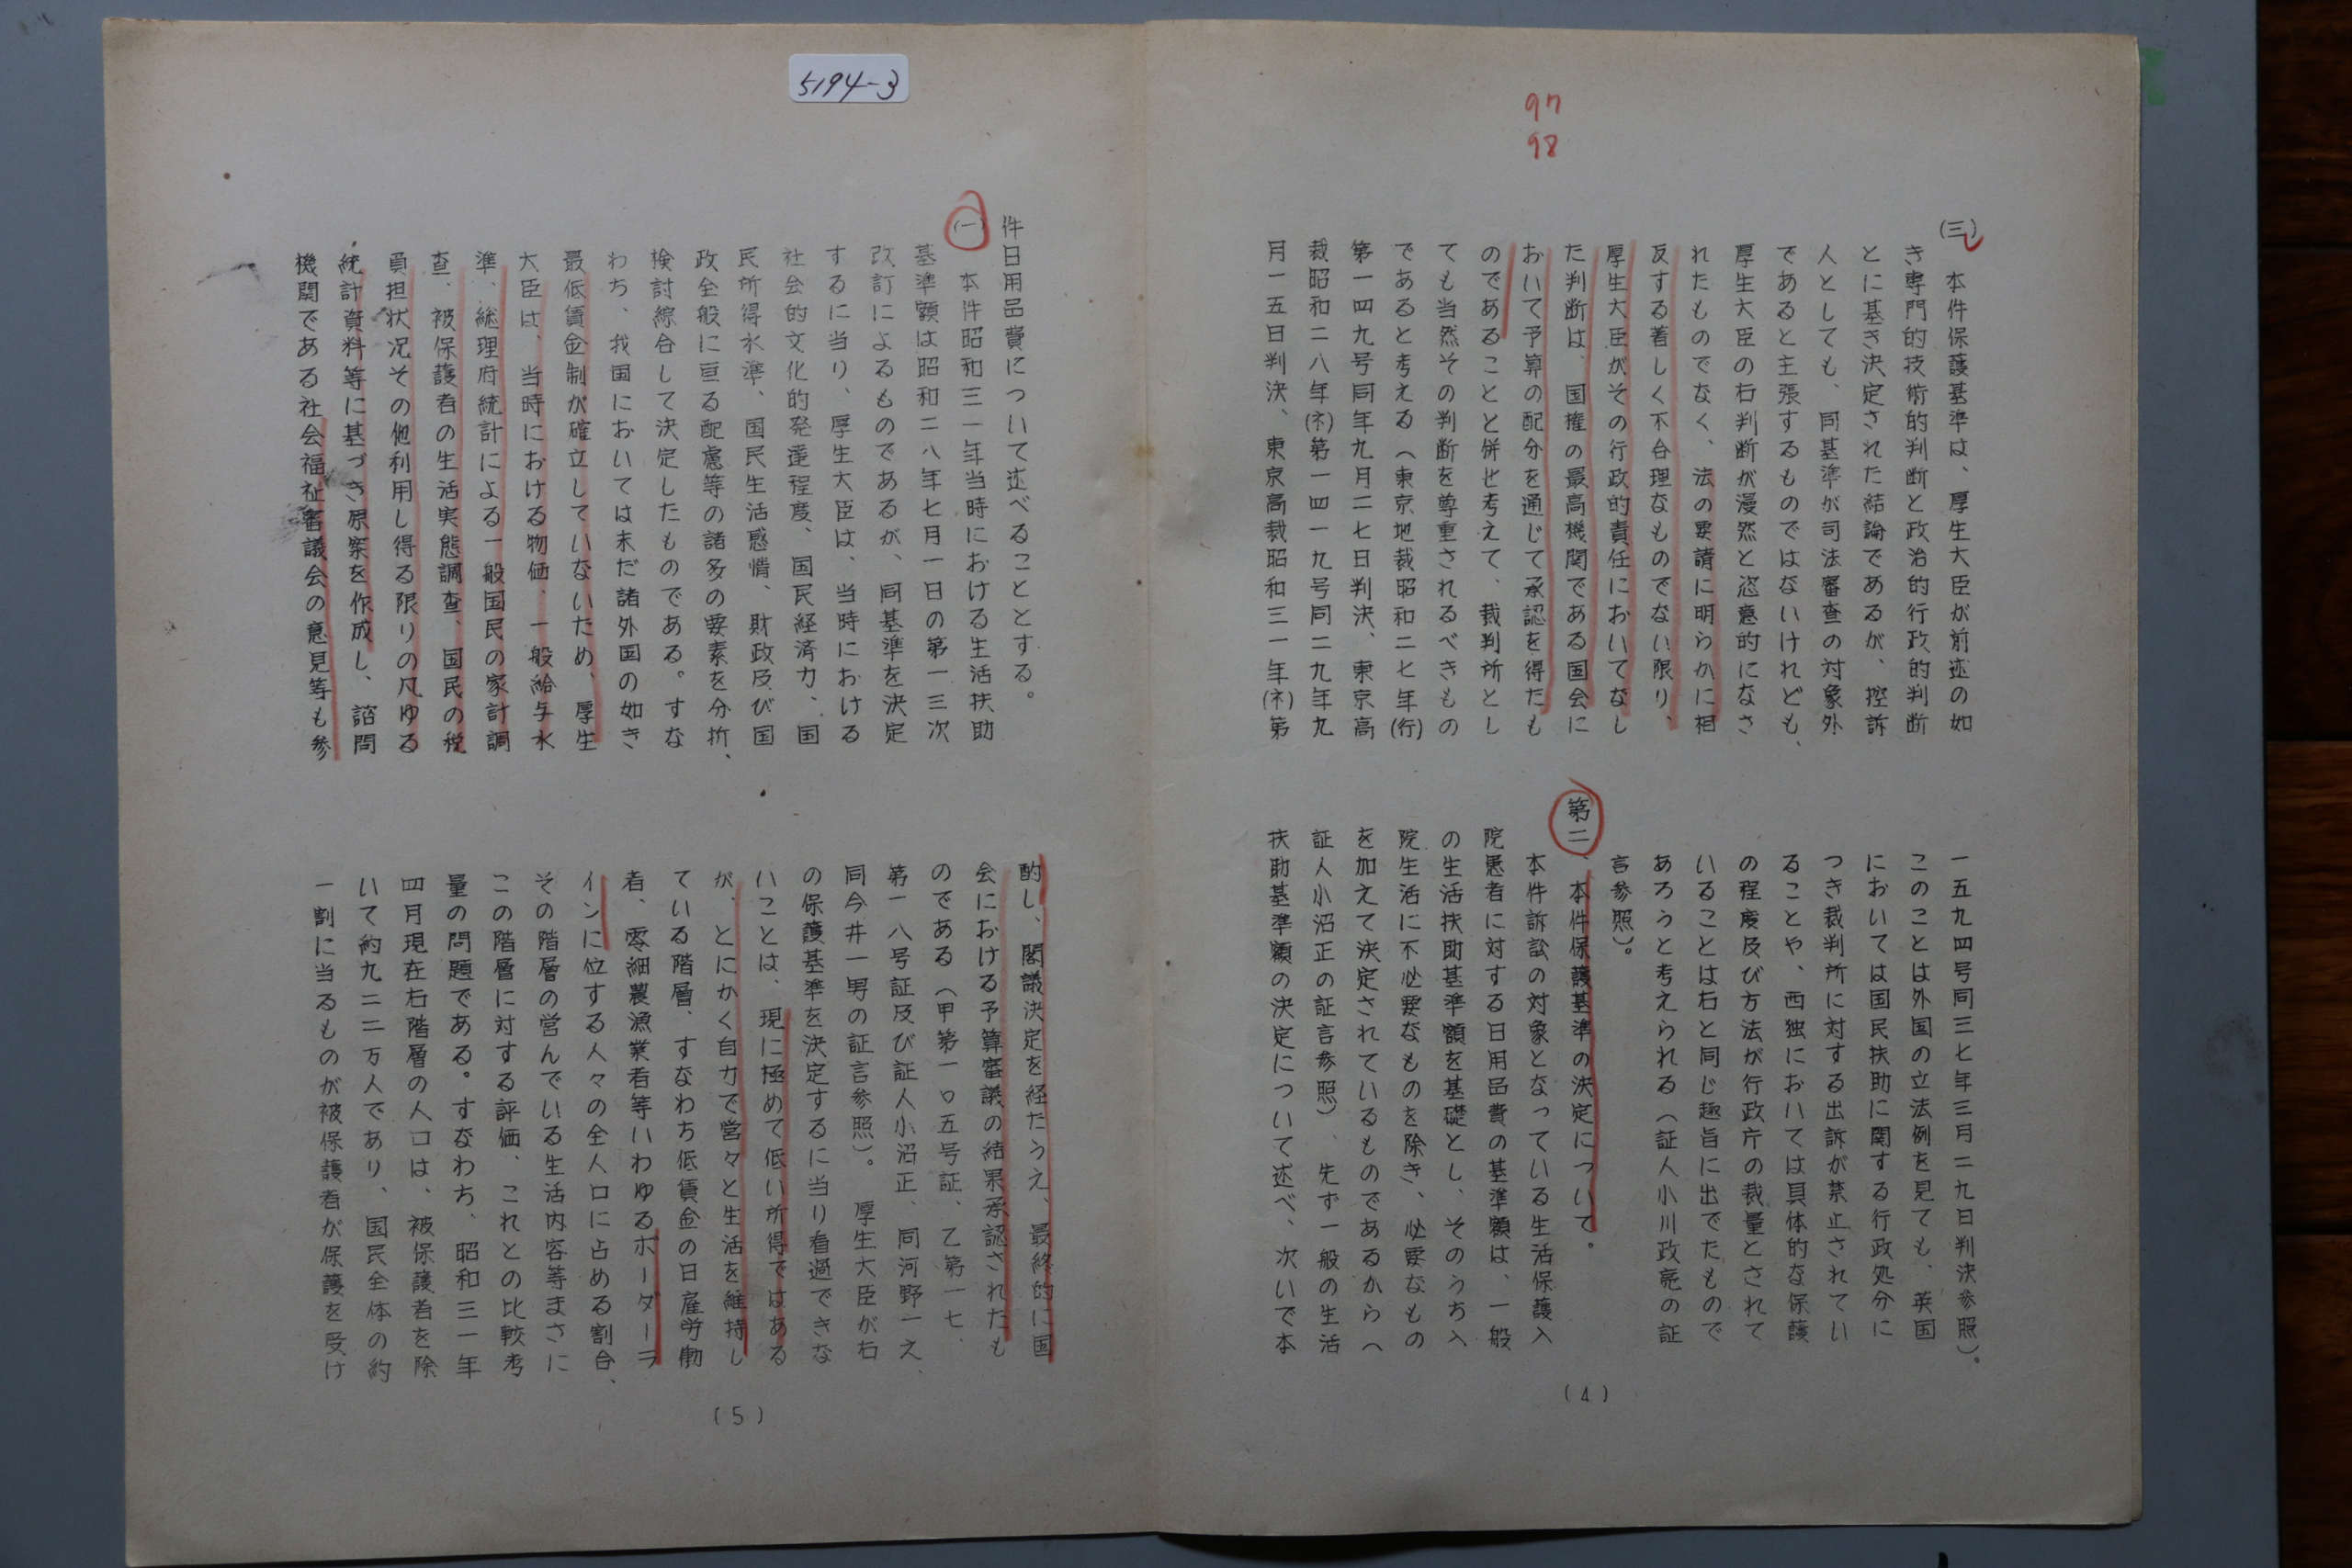 5194-3
97
98
(三)
本件保護基準は、厚生大臣が前述の如
き専門的技術的判断と政治的行政的判断
とに基き決定された結論であるが、控訴
人としても、同基準が司法審査の対象外
であると主張するものではないけれども、
厚生大臣の右判断が漫然と恣意的になさ
れたものでなく、法の要請に明らかに相
反する著しく不合理なものでない限り、
厚生大臣がその行政的責任においてなし
た判断は、国権の最高機関である国会に
おいて予算の配分を通じて承認を得たも
のであることと併せ考えて、裁判所とし
ても当然その判断を尊重されるべきもの
であると考える(東京地裁昭和二七年(行)
第一四九号同年九月二七日判決、東京高
裁昭和二八年(ネ)第一四一九号同二九年九
月一五日判決、東京高裁昭和三一年(ネ)第
一五九四号同三七年三月二九日判決参照)。
このことは外国の立法例を見ても、英国
においては国民扶助に関する行政処分に
つき裁判所に対する出訴が禁止されてい
ることや、西独においては具体的な保護
の程度及び方法が行政庁の裁量とされて
いることは右と同じ趣旨に出でたもので
あろうと考えられる(証人小川政亮の証
言参照)。
第二、本件保護基準の決定について。
本件訴訟の対象となっている生活保護入
院患者に対する日用品費の基準額は、一般
の生活扶助基準額を基礎とし、そのうち入
院生活に不必要なものを除き、必要なもの
を加えて決定されているものであるから(
証人小沼正の証言参照)、先ず一般の生活
扶助基準額の決定について述べ、次いで本
(4)
件日用品費について述べることとする。
(一)
本件昭和三一年当時における生活扶助
基準額は昭和二八年七月一日の第一三次
改訂によるものであるが、同基準を決定
するに当り、厚生大臣は、当時における
社会的文化的発達程度、国民経済力、国
民所得水準、国民生活感情、財政及び国
政全般に亘る配慮等の諸多の要素を分折、
検討綜合して決定したものである。すな
わち、我国においては未だ諸外国の如き
最低賃金制が確立していないため、厚生
大臣は、当時における物価、一般給与水
準、総理府統計による一般国民の家計調
査、被保護者の生活実態調査、国民の税
負担状況その他利用し得る限りの凡ゆる
統計資料等に基づき原案を作成し、諮問
機関である社会福祉審議会の意見等も参
酌し、閣議決定を経たうえ、最終的に国
会における予算審議の結果承認されたも
のである(甲第一〇五号証、乙第一七、
第一八号証及び証人小沼正、同河野一之、
同今井一男の証言参照)。厚生大臣が右
の保護基準を決定するに当り看過できな
いことは、現に極めて低い所得ではある
が、とにかく自力で営々と生活を維持し
ている階層、すなわち低賃金の日雇労働
者、零細農漁業者等いわゆるボーダーラ
インに位する人々の全人口に占める割合、
その階層の営んでいる生活内容等まさに
この階層に対する評価、これとの比較考
量の問題である。すなわち、昭和三一年
四月現在右階層の人口は、被保護者を除
いて約九二二万人であり、国民全体の約
一割に当るものが被保護者が保護を受け
(5)